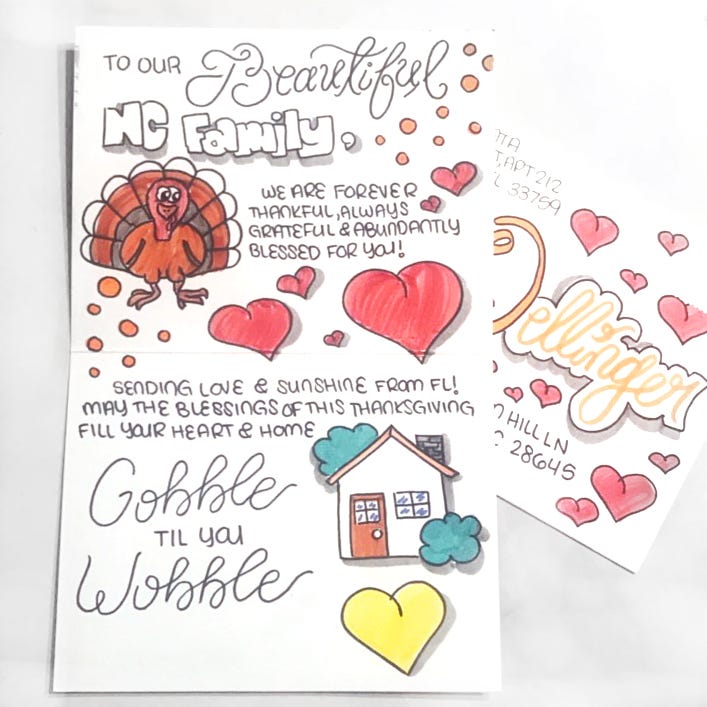 TO OUR Beautiful
NC Family,
WE ARE FOREVER
THANKFUL, ALWAYS
GRATEFUL & ABUNDANTLY
BLESSED FOR YOU!
SENDING LOVE & SUNSHINE FROM FL!
MAY THE BLESSINGS OF THIS THANKSGIVING
FILL YOUR HEART & HOME
Gobble
TIL YOU
Wobble
TTA
T, APT 212
L 33759
Dellinger
HILL LN
C 28645